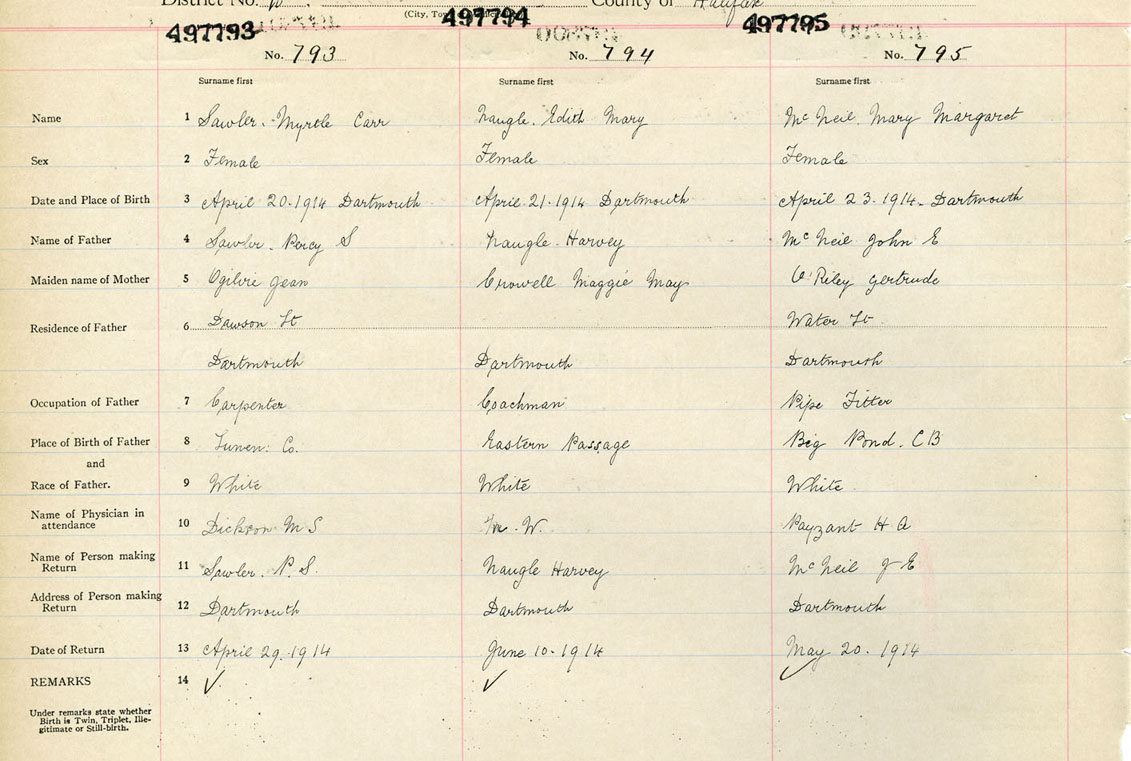 District No. County of Halifax
(City,
497793 497794 497795
No. 793 No. 794 No. 795
Surname first Surname first Surname first
Name 1 Sawler. Myrtle Carr Naugle. Edith Mary Mc Neil. Mary Margaret
Sex 2 Female Female Female
Date and Place of Birth 3 April 20-1914 Dartmouth April 21-1914 Dartmouth April 23-1914. Dartmouth
Name of Father 4 Sawler. Percy S Naugle. Harvey Mc Neil John E
Maiden name of Mother 5 Ogilvie Jean Crowell Maggie May O'Riley Gertrude
Residence of Father 6 Dawson St Water St
Dartmouth Dartmouth Dartmouth
Occupation of Father 7 Carpenter Coachman Pipe Fitter
Place of Birth of Father 8 Lunen. Co. Eastern Passage Big Pond. CB
and
Race of Father. 9 White White White
Name of Physician in
attendance 10 Dickson M S W. Payzant H A
Name of Person making
Return 11 Sawler. P. S. Naugle Harvey Mc Neil J E
Address of Person making
Return 12 Dartmouth Dartmouth Dartmouth
Date of Return 13 April 29-1914 June 10-1914 May 20-1914
REMARKS 14 ✓ ✓ ✓
Under remarks state whether
Birth is Twin, Triplet, Ille-
gitimate or Still-birth.